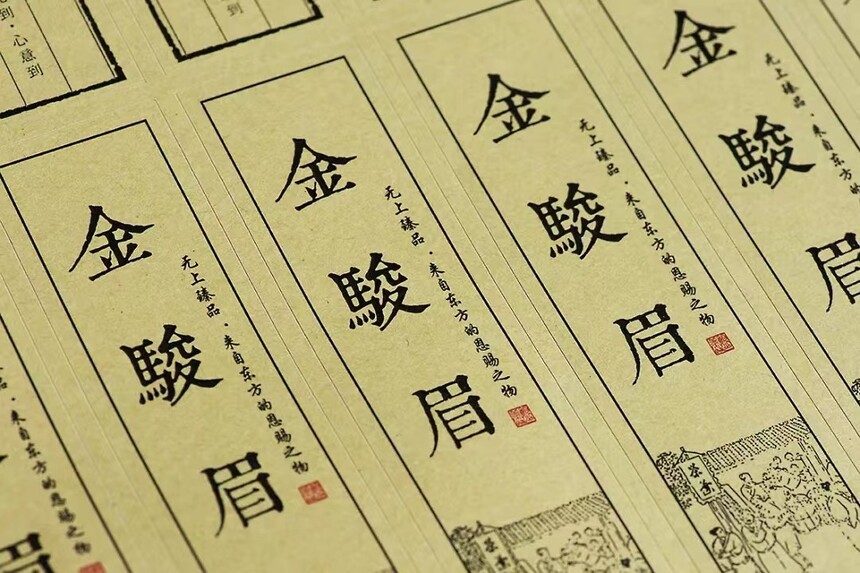 到·心意到
到
金駿眉
无上臻品·来自东方的恩赐之物
金駿眉
无上臻品·来自东方的恩赐之物
金駿眉
无上臻品·来自东方的恩赐之物
金駿眉
无上臻品·来自东方的
品·来自东方的恩赐之物
眉